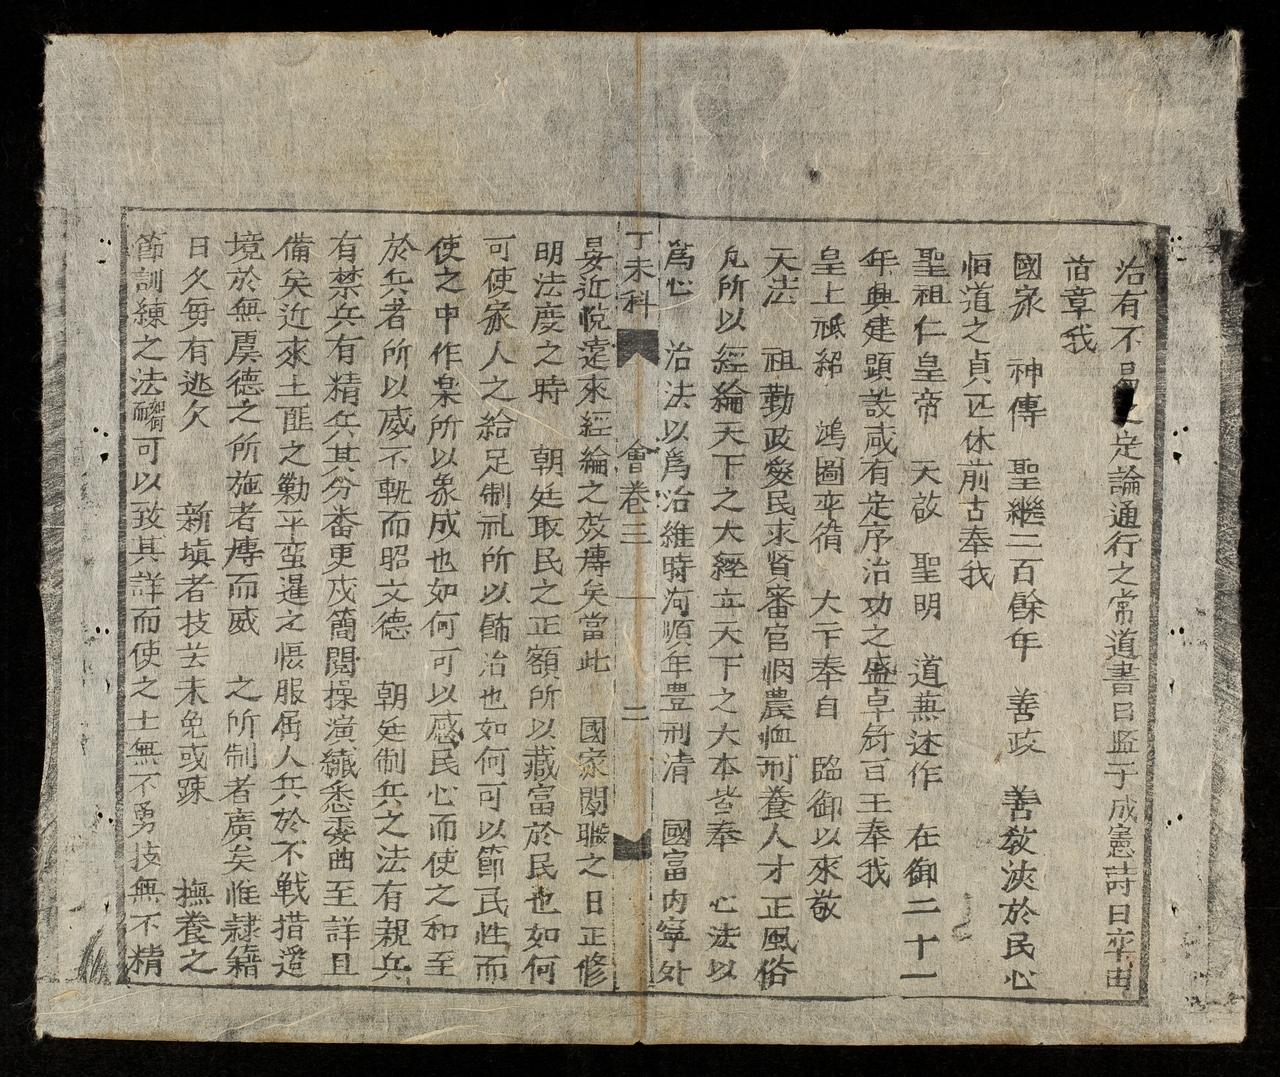 治有不易之定論通行之常道書曰監于成憲詩曰率由
旧章我
國家 神傳 聖繼二百餘年 善政 善教浹於民心
恒道之貞匹休前古奉我
聖祖仁皇帝 天啟 聖明 道兼述作 在御二十一
年興建顯設咸有定序治功之盛卓符百王奉我
皇上祗紹 鴻圖率循 大卞奉自 臨御以來敬
天法 祖勤政愛民求賢審官憫農恤刑養人才正風俗
凡所以經綸天下之大經立天下之大本皆奉 心法以
爲心 治法以爲治維時河順年豊刑清 國富内寧外
丁未科 會卷三 一 二
晏近悅遠來經綸之效慱矣當此 國家閒暇之日正修
明法度之時 朝廷取民之正額所以藏富於民也如何
可使家人之給足制礼所以飾治也如何可以節民性而
使之中作楽所以象成也如何可以感民心而使之和至
於兵者所以威不軌而昭文德 朝廷制兵之法有親兵
有禁兵有精兵其分畨更戍簡閱操演纎悉委曲至詳且
備矣近來土匪之勦平蛮暹之慑服屑人兵於不戦措邉
境於無虞德之所施者慱而威 之所制者廣矣惟隷籍
日久毎有逃欠 新填者技芸未免或踈 撫養之
節訓練之法可以致其詳而使之士無不勇技無不精